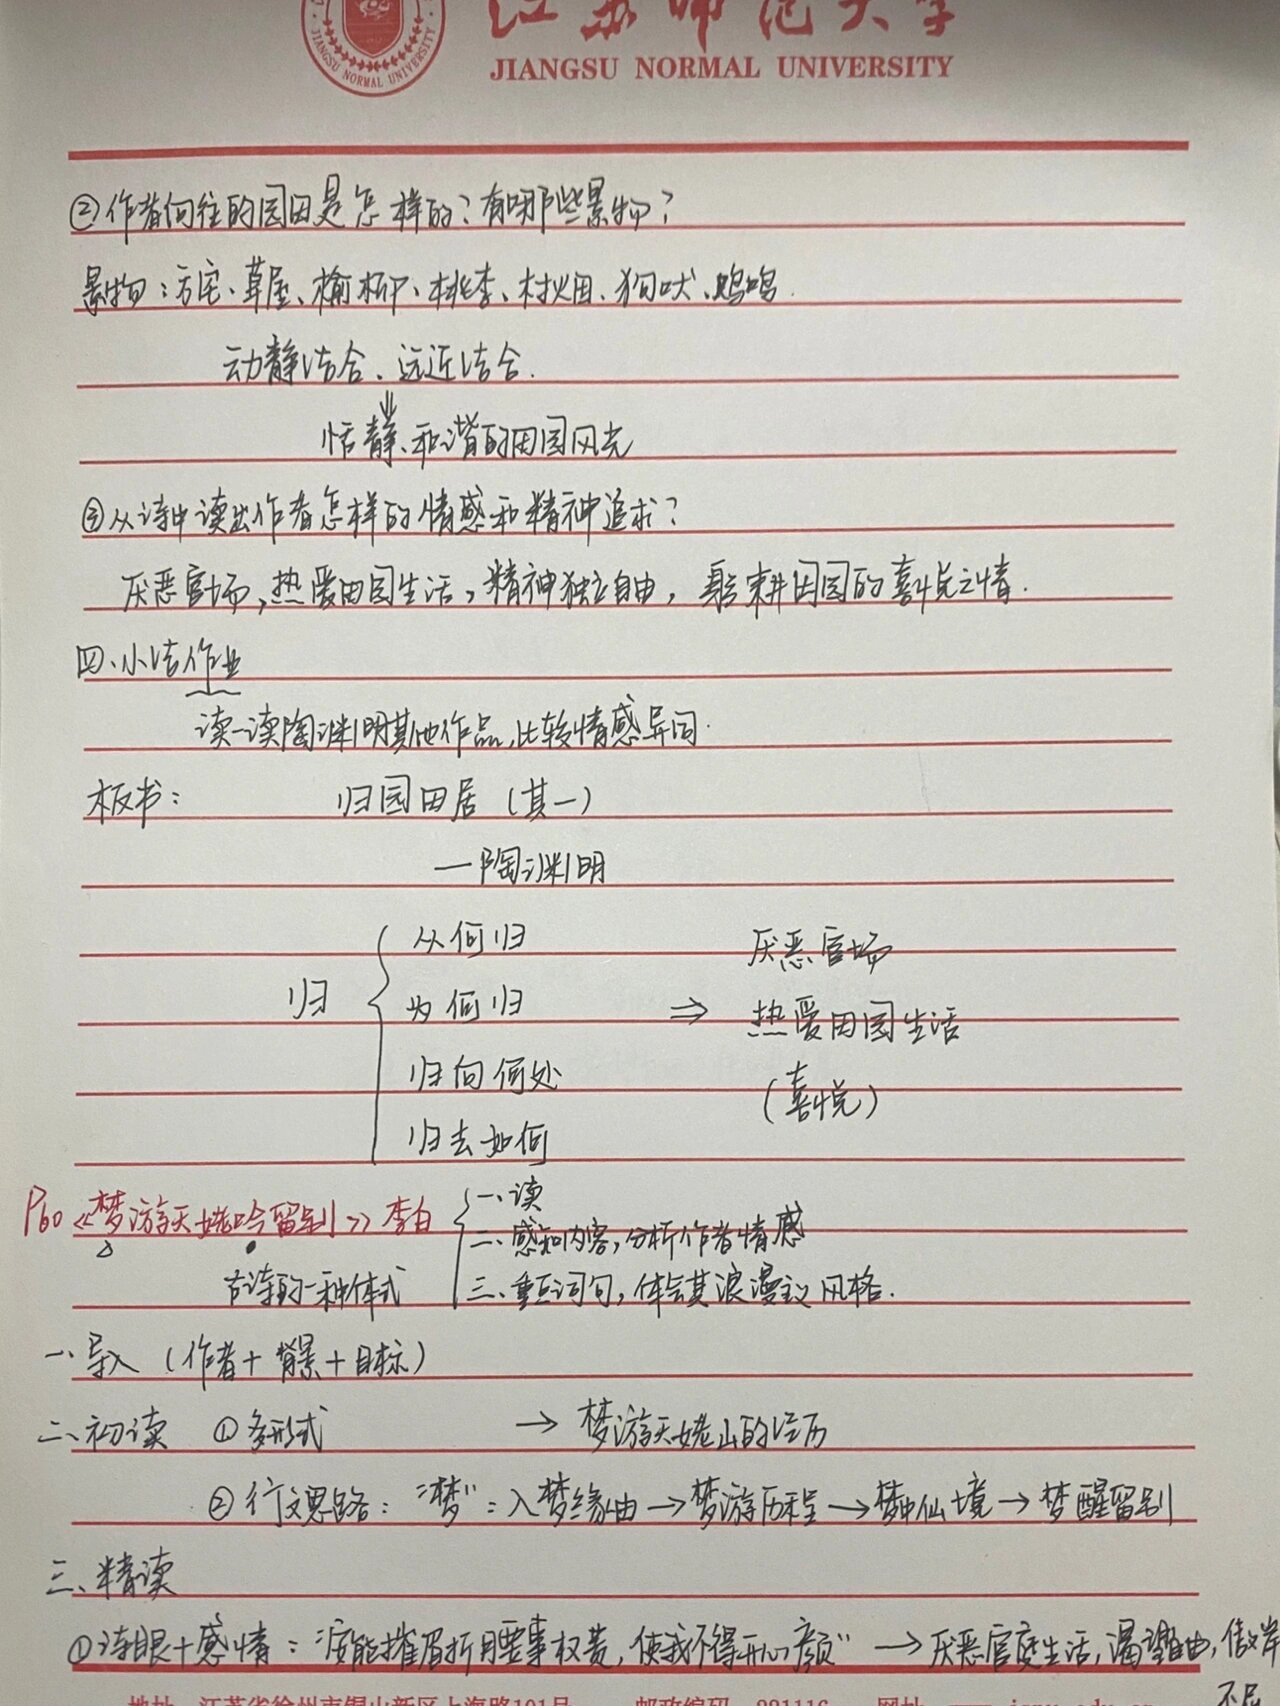 江苏师范大学
JIANGSU NORMAL UNIVERSITY
JIANGSU NORMAL UNIVERSITY
②作者向往的园田是怎样的？有哪些景物？
景物：方宅、草屋、榆柳、桃李、村烟、狗吠、鸡鸣.
动静结合、远近结合.
⇓
恬静、和谐的田园风光
③从诗中读出作者怎样的情感和精神追求？
厌恶官场，热爱田园生活，精神独立自由，躬耕田园的喜悦之情.
四、小结作业
读一读陶渊明其他作品，比较情感异同.
板书： 归园田居（其一）
—陶渊明
从何归 厌恶官场
归 为何归 ⇒ 热爱田园生活
归向何处 （喜悦）
归去如何
P60《梦游天姥吟留别》李白 一、读
二、感知内容，分析作者情感
古诗的一种体式 三、重点词句，体会其浪漫主义风格.
一、导入（作者+背景+目标）
二、初读 ①多形式 → 梦游天姥山的经历
②行文思路：“梦”：入梦缘由→梦游历程→梦中仙境→梦醒留别
三、精读
①诗眼+感情：“安能摧眉折腰事权贵，使我不得开心颜” → 厌恶官庭生活，渴望自由，傲岸
不屈
地址 江苏省徐州市铜山新区上海路101号 邮政编码 221116 网址